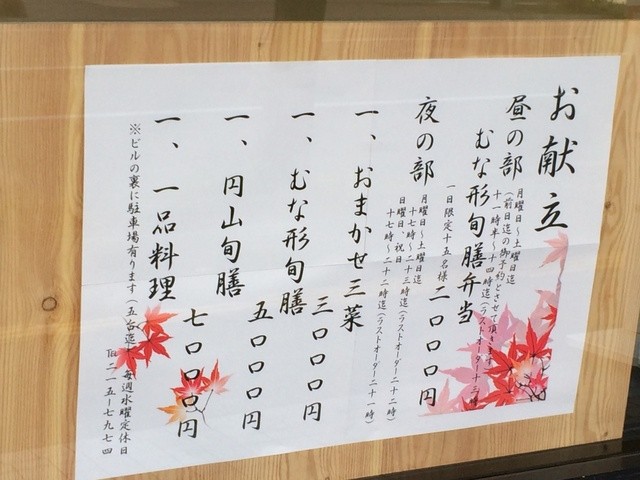 お献立
昼の部
月曜日〜土曜日迄
(前日迄の御予約とさせて頂きます)
十一時半〜十四時迄(ラストオーダー十三時)
むな形旬膳弁当
一日限定十五名様
二〇〇〇円
夜の部
月曜日〜土曜日迄
十七時〜二十三時迄(ラストオーダー二十二時)
日曜日、祝日
十七時〜二十二時迄(ラストオーダー二十一時)
一、おまかせ三菜
三〇〇〇円
一、むな形旬膳
五〇〇〇円
一、円山旬膳
七〇〇〇円
一、一品料理
※ビルの裏に駐車場有ります(五台迄) 毎週水曜定休日
℡二一五-七九七四